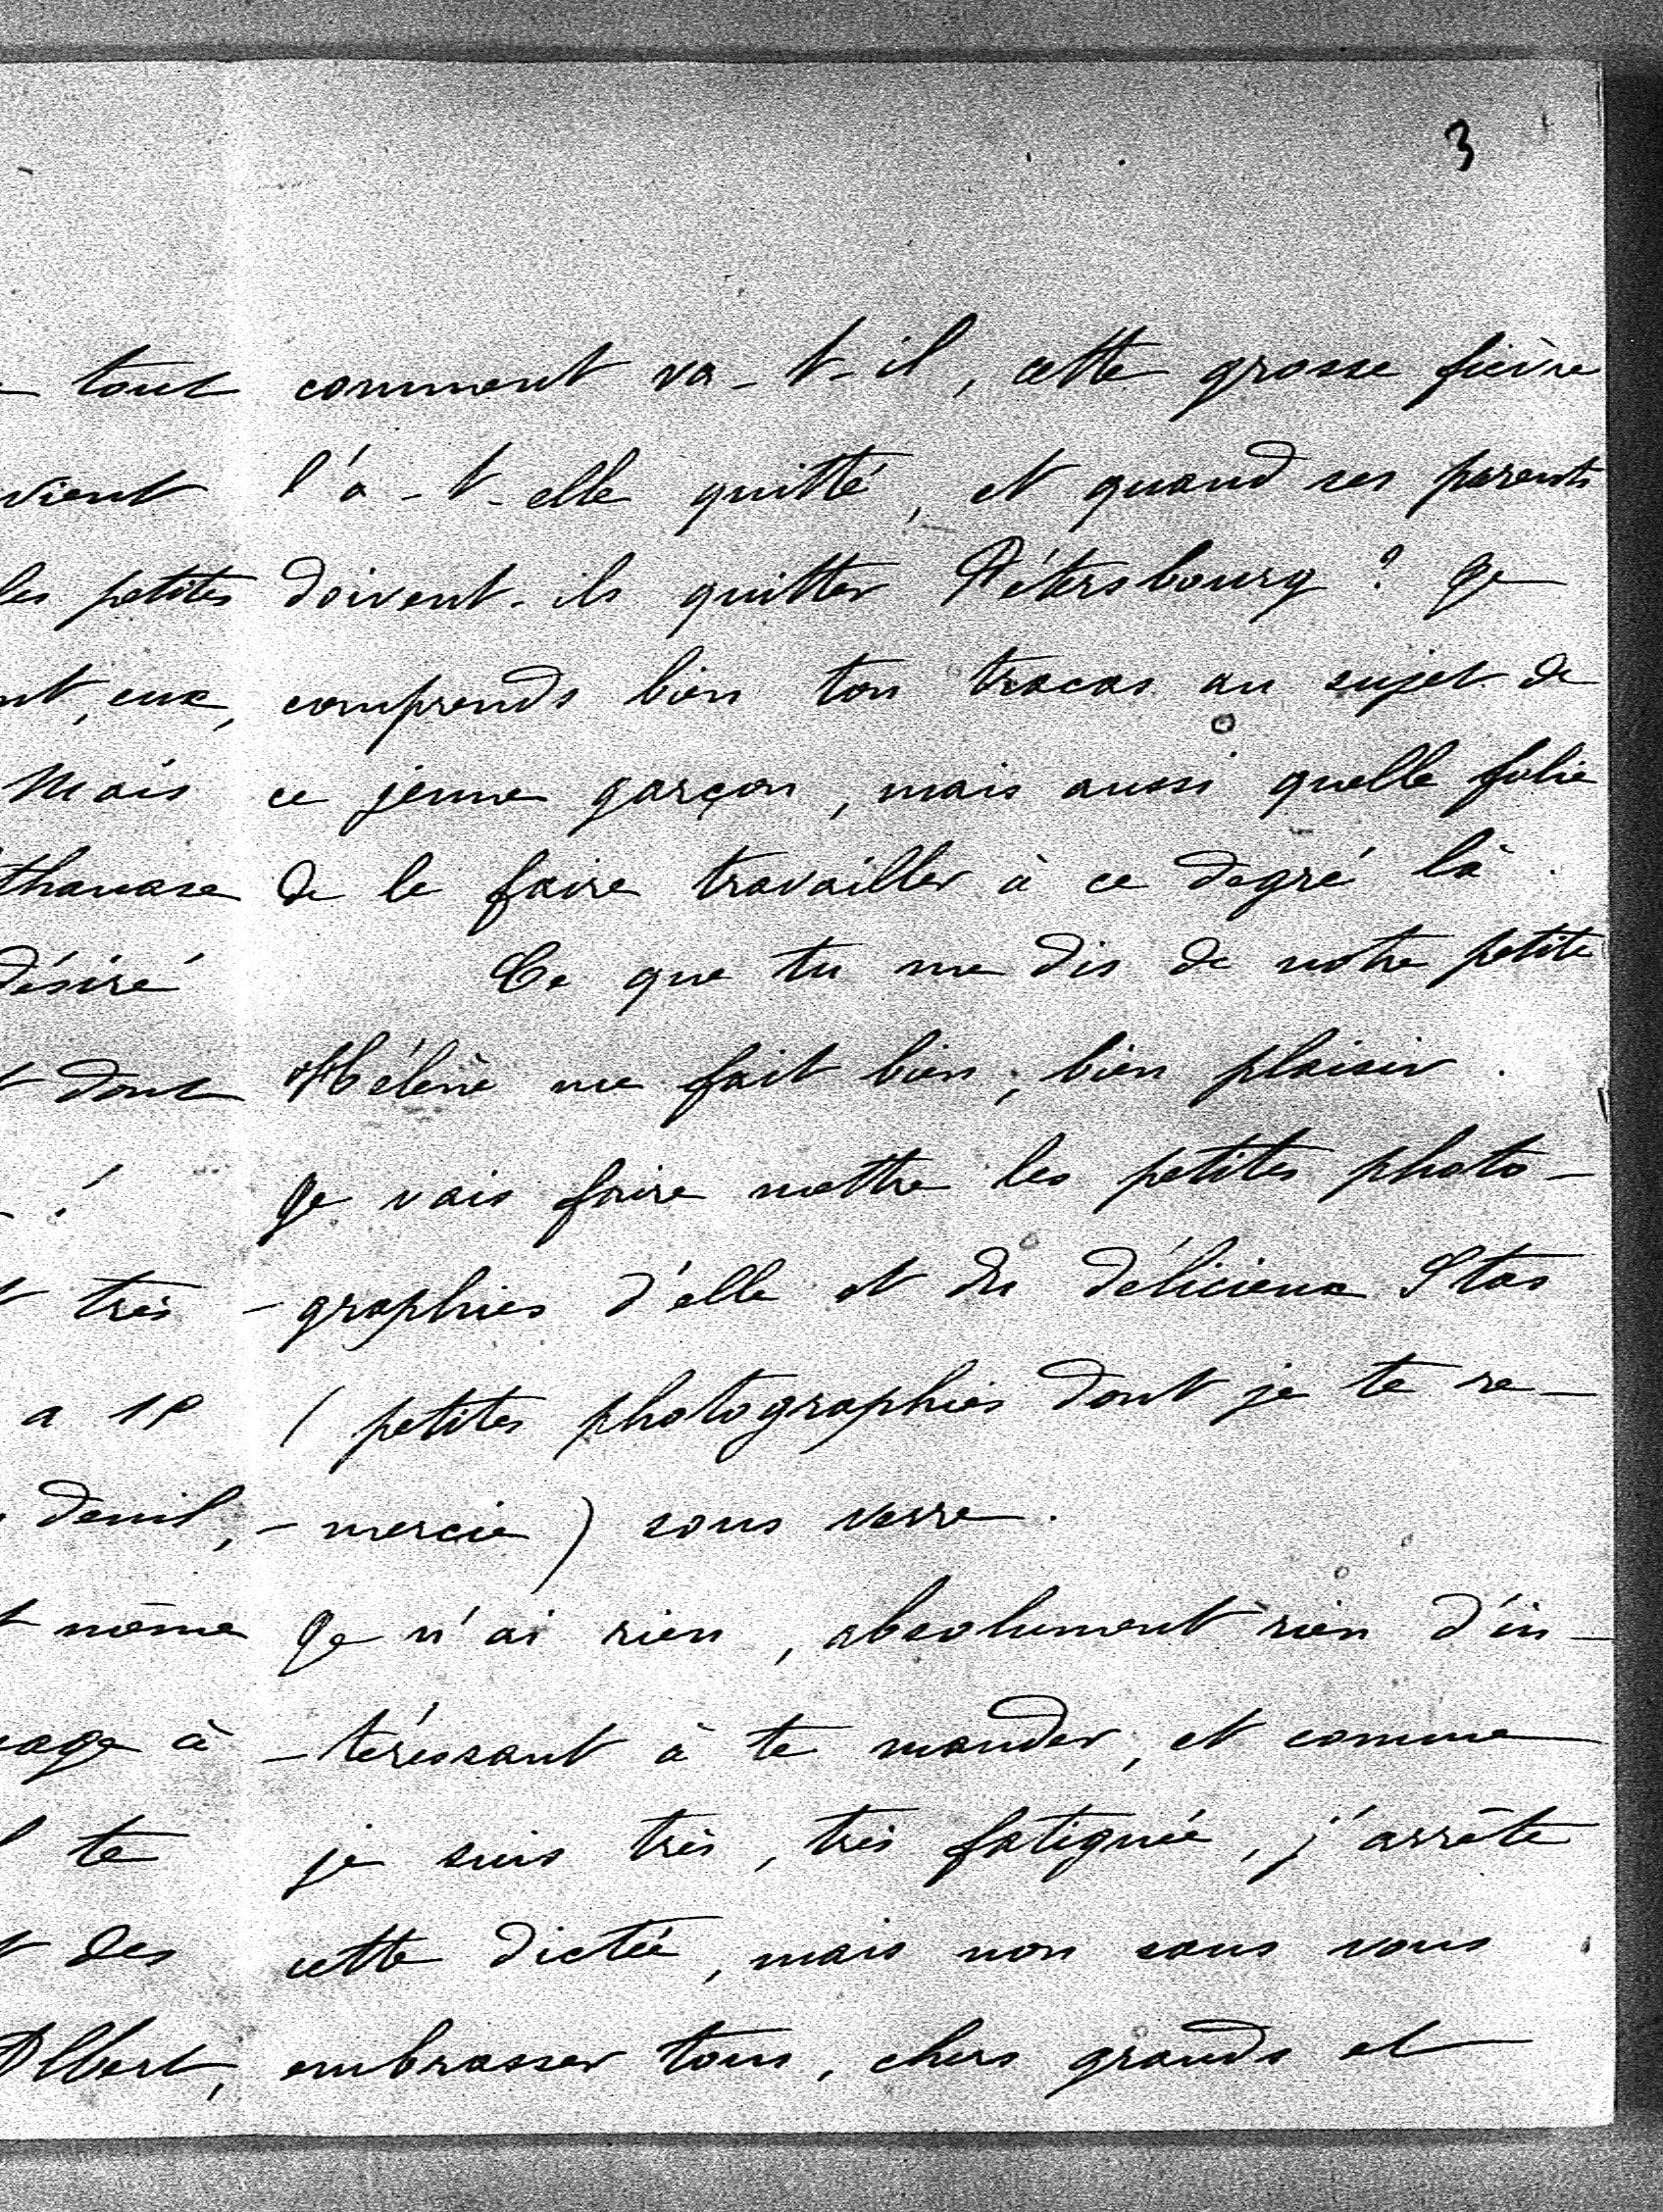 3
comment va-t-il, cette grosse fièvre
l'a-t-elle quitté, et quand ses parents
doivent-ils quitter Pétersbourg ? Je
comprends bien ton tracas au sujet de
ce jeune garçon, mais aussi quelle folie
de le faire travailler à ce degré là.
Ce que tu me dis de notre petite
Hélène me fait bien, bien plaisir.
Je vais faire mettre les petites photo-
-graphies d'elle et du délicieux Stas
(petites photographies dont je te re-
-mercie) sous verre.
Je n'ai rien, absolument rien d'in-
-téressant à te mander, et comme
je suis très, très fatiguée, j'arrête
cette dictée, mais non sans vous
embrasser tous, chers grands et
tout
vient
les petites
nt, eux,
Mais
thanase
désiré
t dont
!
t très
a 1e
deuil,
t même
age à
te
t des
Albert,